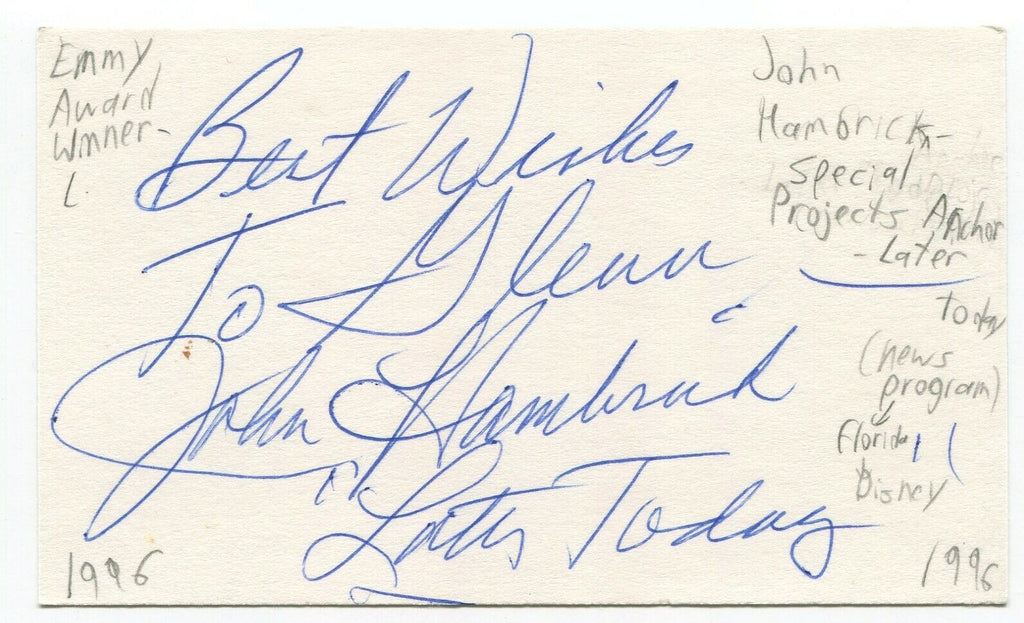 Emmy
Award
Winner-
Best Wishes
To Glenn
John Hambrick
"Later Today
John
Hambrick-
Special
Projects Anchor
- Later
Today
(news
program)
Florida
Disney
1996
1996